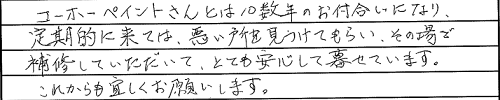 コーホーペイントさんとは10数年のお付合いになり、
定期的に来ては、悪い所を見つけてもらい、その場で
補修していただいて、とても安心して暮せています。
これからも宜しくお願いします。